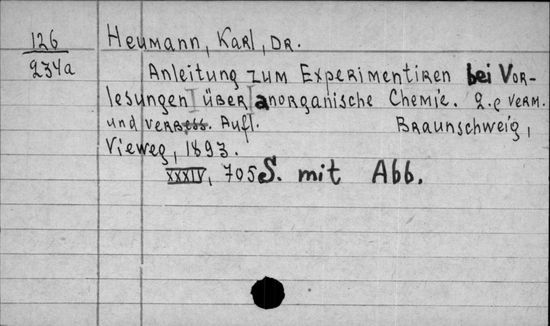 126
234a
Heumann, Karl, Dr.
Anleitung zum Experimentiren bei Vor-
lesungen über anorganische Chemie. 2.e verm.
und verbess. Aufl. Braunschweig,
Vieweg, 1893.
XXXIV, 705 S. mit Abb.